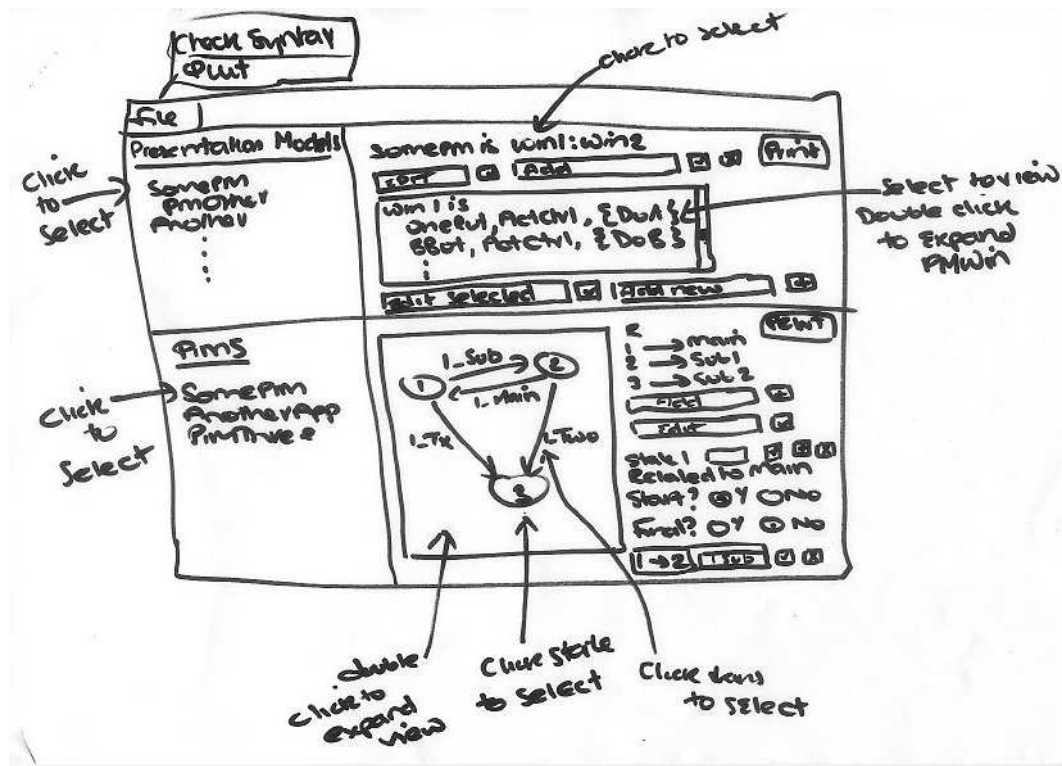 Check Syntax
Quit
File
Click to select
Presentation Models
SomePM
PMOther
Another
Click
to
Select
somePM is win1:win2
Print
Edit
Add
win1 is
ActCtrl, {DoA}
BBut, ActCtrl, {DoB}
Edit selected
Add new
Select to view
Double click
to expand
PMWin
PIMS
SomePIM
AnotherApp
PimThree
Click
to
Select
1
I_Sub
2
I_Main
I_Two
3
R
1 → Main
2 → Sub1
3 → Sub2
Add
Edit
State 1
Related to Main
Start? Y No
Final? Y No
1→2 I Sub
double
click to
expand
view
Click state
to select
Click trans
to select